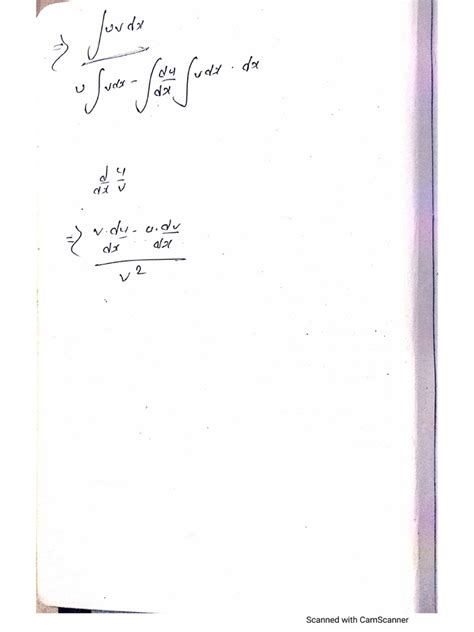 ⇒ ∫uv dx
u ∫vdx - ∫ du/dx ∫vdx · dx
d/dx u/v
⇒ (v·du/dx - u·dv/dx) / v²
Scanned with CamScanner